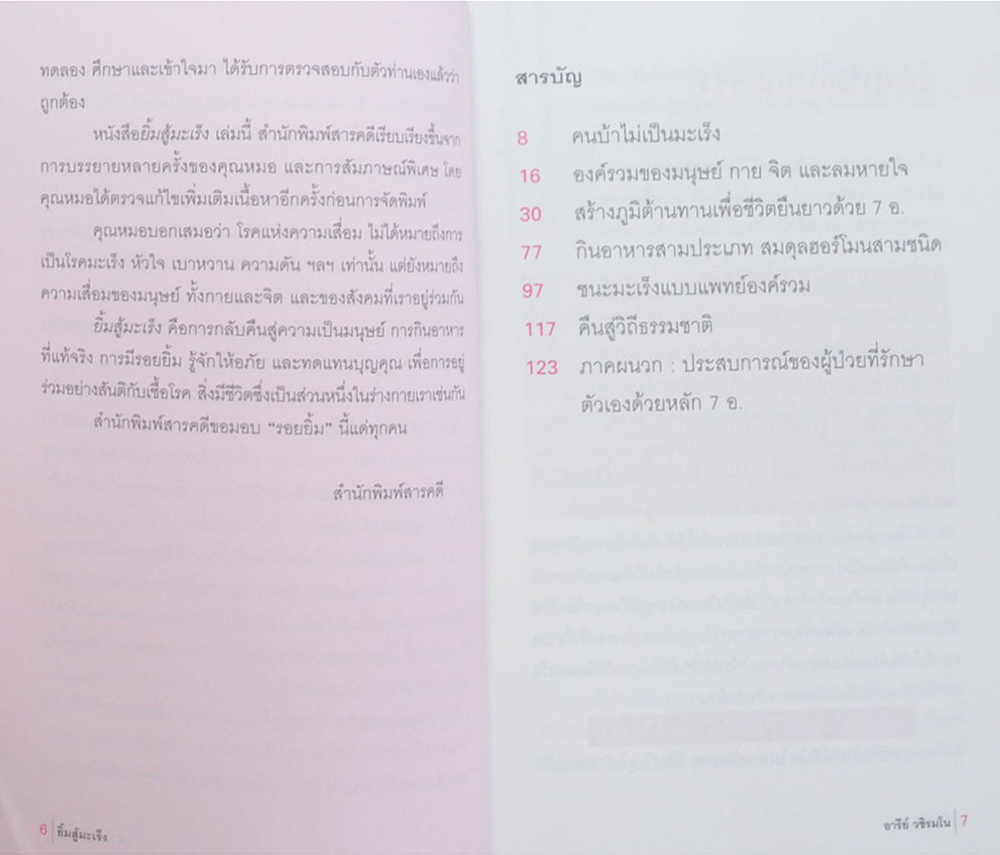 ทดลอง ศึกษาและเข้าใจมา ได้รับการตรวจสอบกับตัวท่านเองแล้วว่า
ถูกต้อง
หนังสือยิ้มสู้มะเร็ง เล่มนี้ สำนักพิมพ์สารคดีเรียบเรียงขึ้นจาก
การบรรยายหลายครั้งของคุณหมอ และการสัมภาษณ์พิเศษ โดย
คุณหมอได้ตรวจแก้ไขเพิ่มเติมเนื้อหาอีกครั้งก่อนการจัดพิมพ์
คุณหมอบอกเสมอว่า โรคแห่งความเสื่อม ไม่ได้หมายถึงการ
เป็นโรคมะเร็ง หัวใจ เบาหวาน ความดัน ฯลฯ เท่านั้น แต่ยังหมายถึง
ความเสื่อมของมนุษย์ ทั้งกายและจิต และของสังคมที่เราอยู่ร่วมกัน
ยิ้มสู้มะเร็ง คือการกลับคืนสู่ความเป็นมนุษย์ การกินอาหาร
ที่แท้จริง การมีรอยยิ้ม รู้จักให้อภัย และทดแทนบุญคุณ เพื่อการอยู่
ร่วมอย่างสันติกับเชื้อโรค สิ่งมีชีวิตซึ่งเป็นส่วนหนึ่งในร่างกายเราเช่นกัน
สำนักพิมพ์สารคดีขอมอบ “รอยยิ้ม” นี้แด่ทุกคน
สำนักพิมพ์สารคดี
6 ยิ้มสู้มะเร็ง
สารบัญ
8 คนบ้าไม่เป็นมะเร็ง
16 องค์รวมของมนุษย์ กาย จิต และลมหายใจ
30 สร้างภูมิต้านทานเพื่อชีวิตยืนยาวด้วย 7 อ.
77 กินอาหารสามประเภท สมดุลฮอร์โมนสามชนิด
97 ชนะมะเร็งแบบแพทย์องค์รวม
117 คืนสู่วิถีธรรมชาติ
123 ภาคผนวก : ประสบการณ์ของผู้ป่วยที่รักษา
ตัวเองด้วยหลัก 7 อ.
อารีย์ วชิรมโน 7